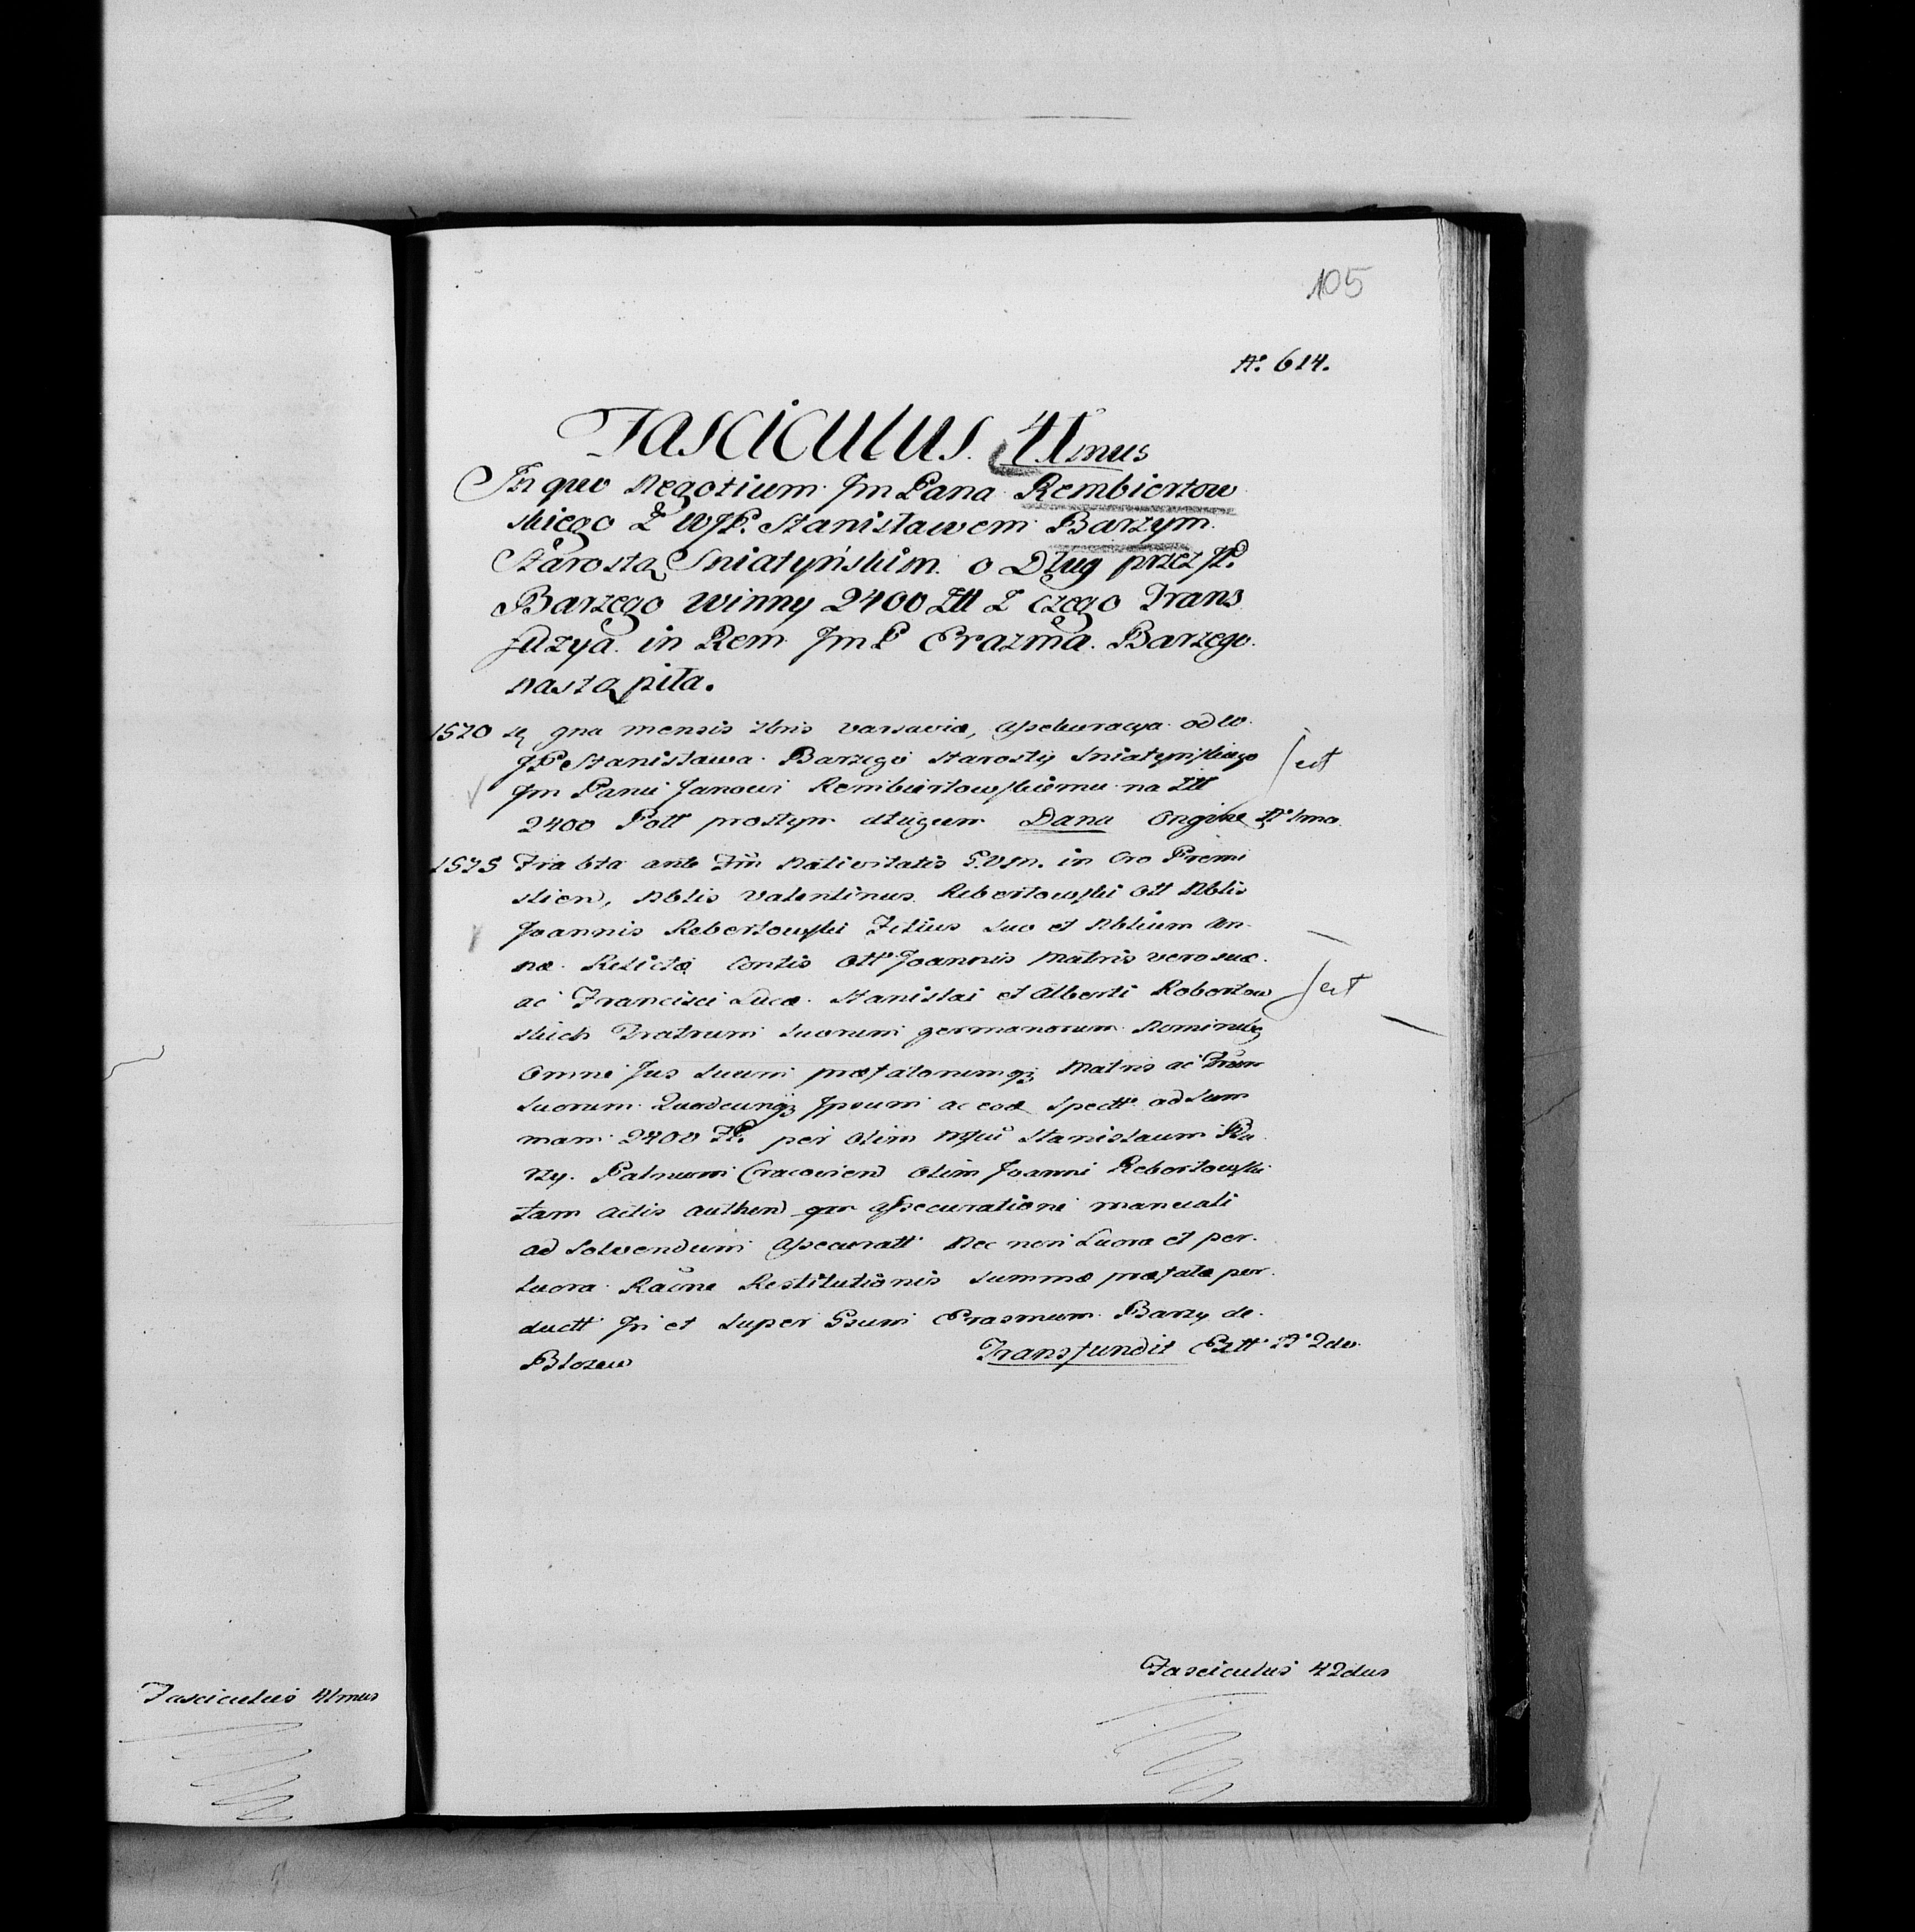 105
N° 614.
Fasciculus. 41mus
In quo Negotium Jm Pana Rembiertow
skiego Z WJP. Stanisławem Barzym
Starostą Sniatyńskim o Dług przez JP.
Barzego winny 2400 Zll Z czego Trans
fuzya in Rem Jm P Erazma Barzego
nastąpiła.
1570 9na mensis Xbris Varsaviæ, Assekuracya od W.
JP Stanisława Barzego Starosty Sniatynskiego
Jm Panu Janowi Rembiertowskiemu na Zll
2400 Poll prostym długiem Dana Origine N° 1mo
1575 Fria 6ta ante Ftu Nativitatis B.V.M. in Cro Premi
slien, Nblis Valentinus Rebertowski Oll Nblis
Joannis Rebertowski Filius suo et Nblium An-
næ Relictæ Contis Oll Joannis Matris vero suæ
ac Francisci Lucæ Stanislai et Alberti Rebertow
skich Fratrum suorum germanorum Nominibq
Omne Jus suum præfatorumqz Matris ac Fratrum
suorum Quodcunqz Ipsum ac eos spectt ad sum
mam 2400 Fl. per olim Mgcu Stanislaum Ba
rzy Palnum Cracovien olim Joanni Rebertowski
tam actis authen qm assecuratione manuali
ad solvendum assecuratt Nec non Lucra et per
lucra Raone Restitutionis summæ præfatæ per
ductt In et super Gsum Erasmum Barzy de
Blozew Transfundit Extt N° 2do
Fasciculus 42dus
Fasciculus 41mus